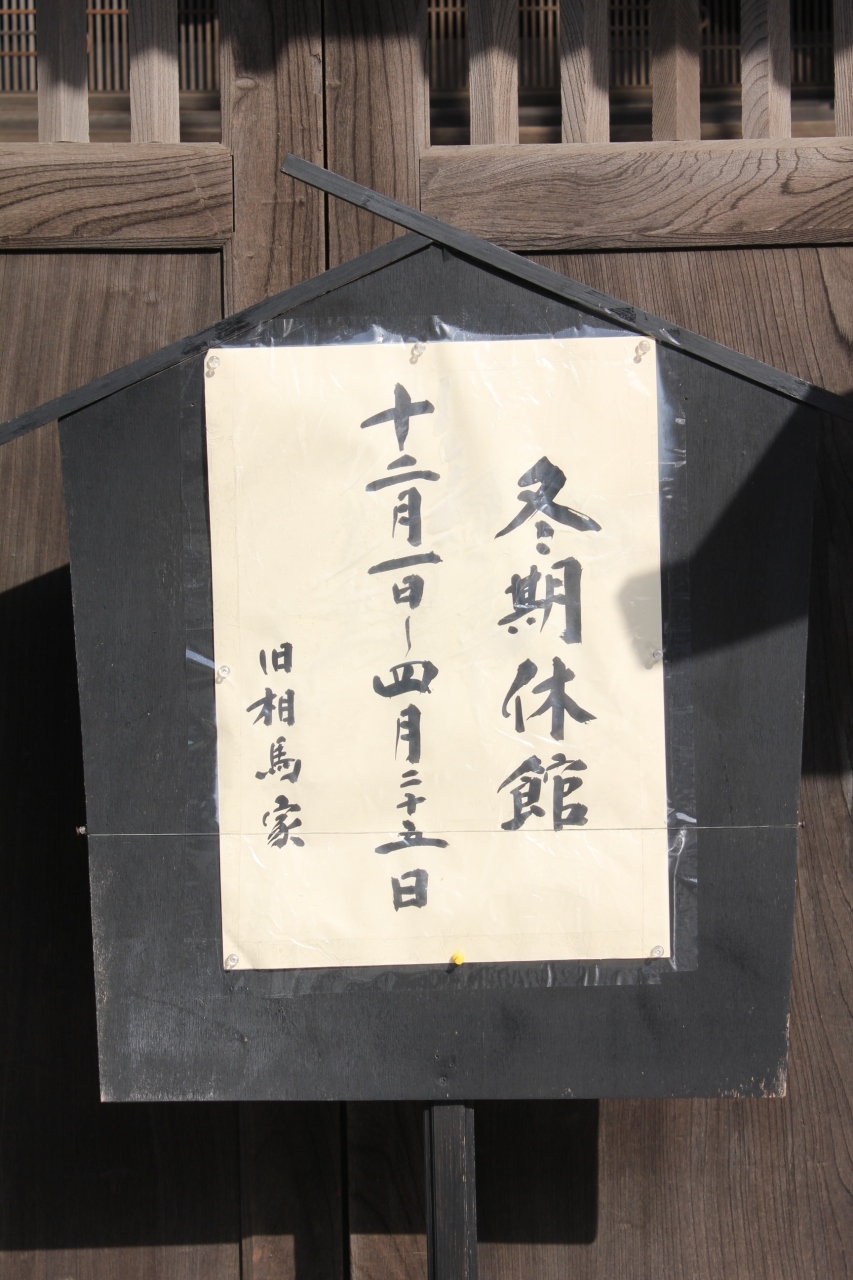 冬期休館
十二月一日〜四月二十五日
旧相馬家